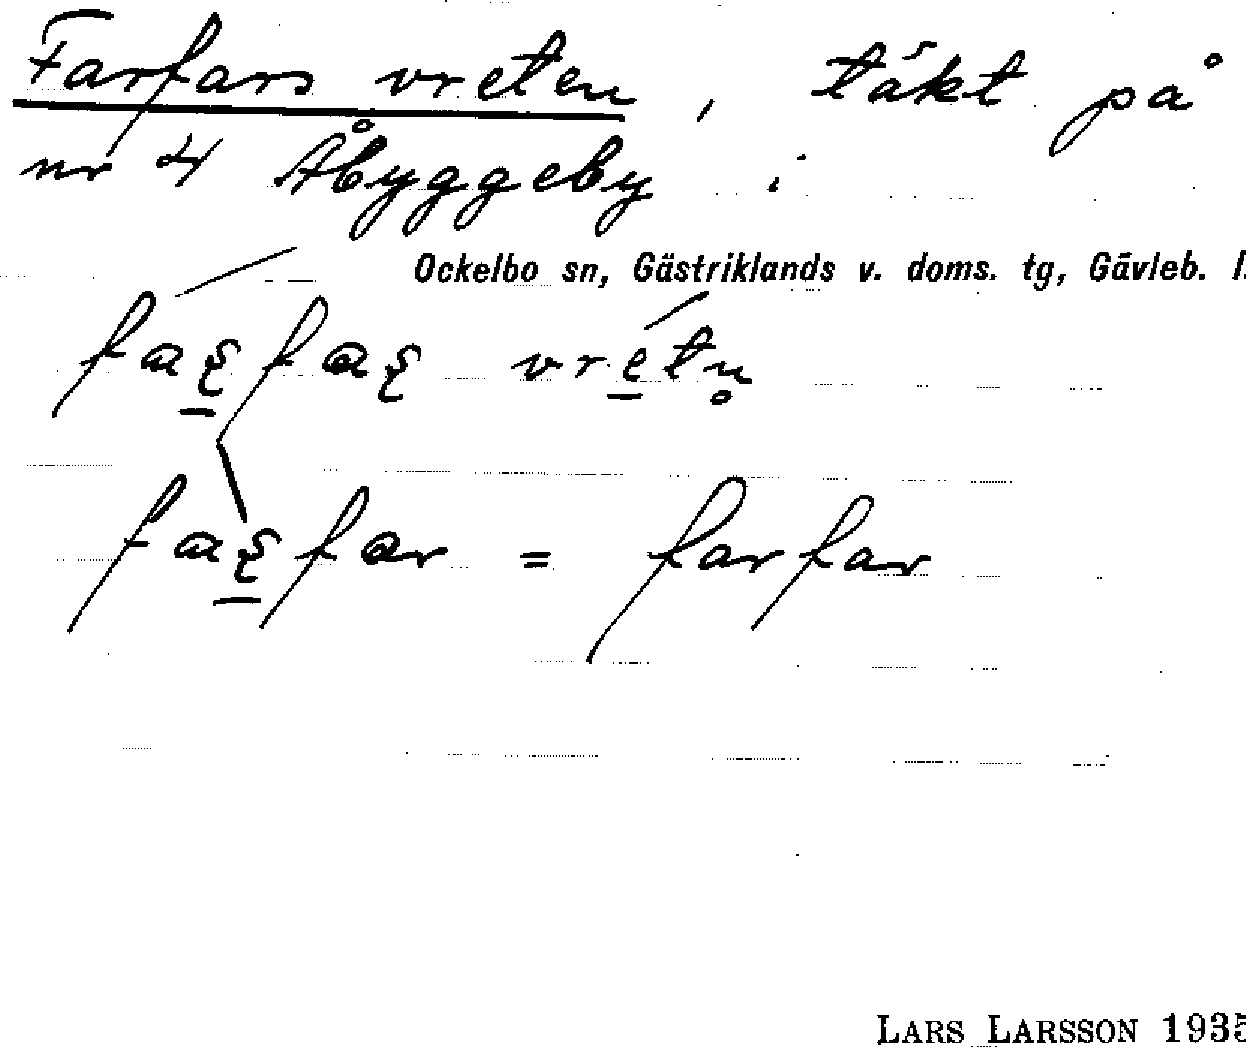 Farfars vreten, täkt på
nr 4 Åbyggeby i
Ockelbo sn, Gästriklands v. doms. tg, Gävleb. l.
faʂfaʂ vretn̥
faʂfar = farfar
LARS LARSSON 1935